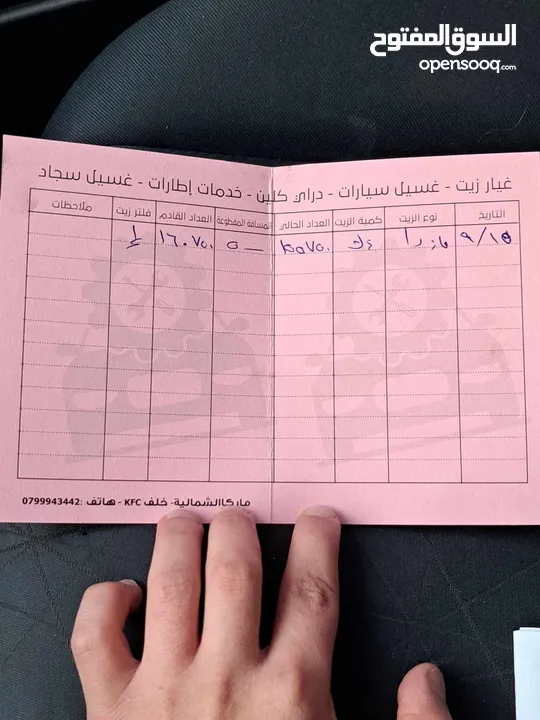 السوق المفتوح
opensooq.com
غيار زيت - غسيل سيارات - دراي كلين - خدمات إطارات - غسيل سجاد
التاريخ نوع الزيت كمية الزيت العداد الحالي المسافة المقطوعة العداد القادم فلتر زيت ملاحظات
٩/١٥ ٤ك ١٥٥٧٥٠ ٥ــ ١٦٠٧٥٠
ماركا الشمالية- خلف KFC - هاتف :0799943442